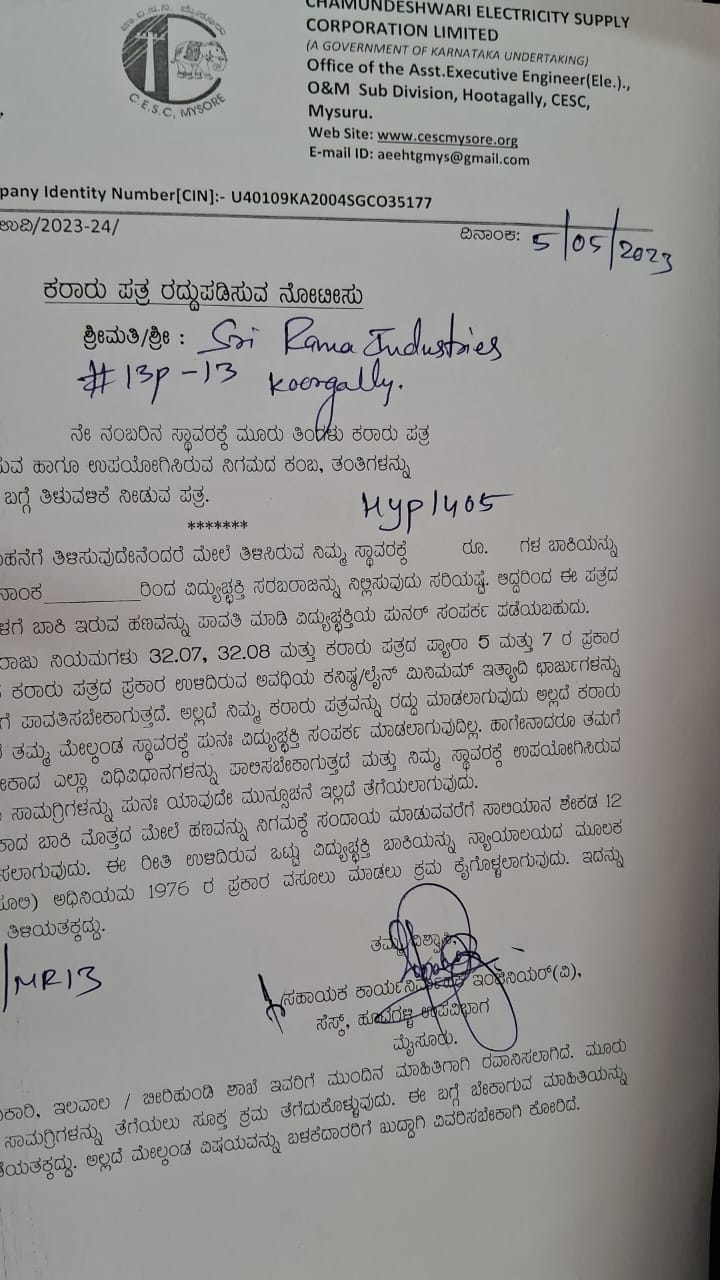 ಚಾ.ವಿ.ಸ.ನಿ. ಮೈಸೂರು
C.E.S.C, MYSORE
CHAMUNDESHWARI ELECTRICITY SUPPLY
CORPORATION LIMITED
(A GOVERNMENT OF KARNATAKA UNDERTAKING)
Office of the Asst.Executive Engineer(Ele.).,
O&M Sub Division, Hootagally, CESC,
Mysuru.
Web Site: www.cescmysore.org
E-mail ID: aeehtgmys@gmail.com
pany Identity Number[CIN]:- U40109KA2004SGCO35177
ಉವಿ/2023-24/ ದಿನಾಂಕ: 5/05/2023
ಕರಾರು ಪತ್ರ ರದ್ದುಪಡಿಸುವ ನೋಟೀಸು
ಶ್ರೀಮತಿ/ಶ್ರೀ : Sri Rama Industries
#13p-13 Koorgally.
ನೇ ನಂಬರಿನ ಸ್ಥಾವರಕ್ಕೆ ಮೂರು ತಿಂಗಳು ಕರಾರು ಪತ್ರ
ುವ ಹಾಗೂ ಉಪಯೋಗಿಸಿರುವ ನಿಗಮದ ಕಂಬ, ತಂತಿಗಳನ್ನು
ಬಗ್ಗೆ ತಿಳುವಳಿಕೆ ನೀಡುವ ಪತ್ರ.
HYP/405
*******
ಹನೆಗೆ ತಿಳಿಸುವುದೇನೆಂದರೆ ಮೇಲೆ ತಿಳಿಸಿರುವ ನಿಮ್ಮ ಸ್ಥಾವರಕ್ಕೆ ರೂ. ಗಳ ಬಾಕಿಯನ್ನು
ನಾಂಕ__________ರಿಂದ ವಿದ್ಯುಚ್ಛಕ್ತಿ ಸರಬರಾಜನ್ನು ನಿಲ್ಲಿಸುವುದು ಸರಿಯಷ್ಟೆ. ಆದ್ದರಿಂದ ಈ ಪತ್ರದ
ಳಗೆ ಬಾಕಿ ಇರುವ ಹಣವನ್ನು ಪಾವತಿ ಮಾಡಿ ವಿದ್ಯುಚ್ಛಕ್ತಿಯ ಪುನರ್ ಸಂಪರ್ಕ ಪಡೆಯಬಹುದು.
ರಾಜು ನಿಯಮಗಳು 32.07, 32.08 ಮತ್ತು ಕರಾರು ಪತ್ರದ ಪ್ಯಾರಾ 5 ಮತ್ತು 7 ರ ಪ್ರಕಾರ
ಕರಾರು ಪತ್ರದ ಪ್ರಕಾರ ಉಳಿದಿರುವ ಅವಧಿಯ ಕನಿಷ್ಠ/ಲೈನ್ ಮಿನಿಮಮ್ ಇತ್ಯಾದಿ ಛಾರ್ಜುಗಳನ್ನು
ಗೆ ಪಾವತಿಸಬೇಕಾಗುತ್ತದೆ. ಅಲ್ಲದೆ ನಿಮ್ಮ ಕರಾರು ಪತ್ರವನ್ನು ರದ್ದು ಮಾಡಲಾಗುವುದು ಅಲ್ಲದೆ ಕರಾರು
ತಮ್ಮ ಮೇಲ್ಕಂಡ ಸ್ಥಾವರಕ್ಕೆ ಪುನಃ ವಿದ್ಯುಚ್ಛಕ್ತಿ ಸಂಪರ್ಕ ಮಾಡಲಾಗುವುದಿಲ್ಲ. ಹಾಗೇನಾದರೂ ತಮಗೆ
ೇಕಾದ ಎಲ್ಲಾ ವಿಧಿವಿಧಾನಗಳನ್ನು ಪಾಲಿಸಬೇಕಾಗುತ್ತದೆ ಮತ್ತು ನಿಮ್ಮ ಸ್ಥಾವರಕ್ಕೆ ಉಪಯೋಗಿಸಿರುವ
ಸಾಮಗ್ರಿಗಳನ್ನು ಪುನಃ ಯಾವುದೇ ಮುನ್ಸೂಚನೆ ಇಲ್ಲದೆ ತೆಗೆಯಲಾಗುವುದು.
ಕಾದ ಬಾಕಿ ಮೊತ್ತದ ಮೇಲೆ ಹಣವನ್ನು ನಿಗಮಕ್ಕೆ ಸಂದಾಯ ಮಾಡುವವರೆಗೆ ಸಾಲಿಯಾನ ಶೇಕಡ 12
ಸಲಾಗುವುದು. ಈ ರೀತಿ ಉಳಿದಿರುವ ಒಟ್ಟು ವಿದ್ಯುಚ್ಛಕ್ತಿ ಬಾಕಿಯನ್ನು ನ್ಯಾಯಾಲಯದ ಮೂಲಕ
ಸೂಲಿ) ಅಧಿನಿಯಮ 1976 ರ ಪ್ರಕಾರ ವಸೂಲು ಮಾಡಲು ಕ್ರಮ ಕೈಗೊಳ್ಳಲಾಗುವುದು. ಇದನ್ನು
ತಿಳಿಯತಕ್ಕದ್ದು.
ತಮ್ಮ ವಿಶ್ವಾಸಿ,
/MR13
ಸಹಾಯಕ ಕಾರ್ಯನಿರ್ವಾಹಕ ಇಂಜಿನಿಯರ್(ವಿ),
ಸೆಸ್ಕ್, ಹೂಟಗಳ್ಳಿ ಉಪವಿಭಾಗ
ಮೈಸೂರು.
ಕಾರಿ, ಇಲವಾಲ / ಬೀರಿಹುಂಡಿ ಶಾಖೆ ಇವರಿಗೆ ಮುಂದಿನ ಮಾಹಿತಿಗಾಗಿ ರವಾನಿಸಲಾಗಿದೆ. ಮೂರು
ಸಾಮಗ್ರಿಗಳನ್ನು ತೆಗೆಯಲು ಸೂಕ್ತ ಕ್ರಮ ತೆಗೆದುಕೊಳ್ಳುವುದು. ಈ ಬಗ್ಗೆ ಬೇಕಾಗುವ ಮಾಹಿತಿಯನ್ನು
ಡೆಯತಕ್ಕದ್ದು. ಅಲ್ಲದೆ ಮೇಲ್ಕಂಡ ವಿಷಯವನ್ನು ಬಳಕೆದಾರರಿಗೆ ಖುದ್ದಾಗಿ ವಿವರಿಸಬೇಕಾಗಿ ಕೋರಿದೆ.